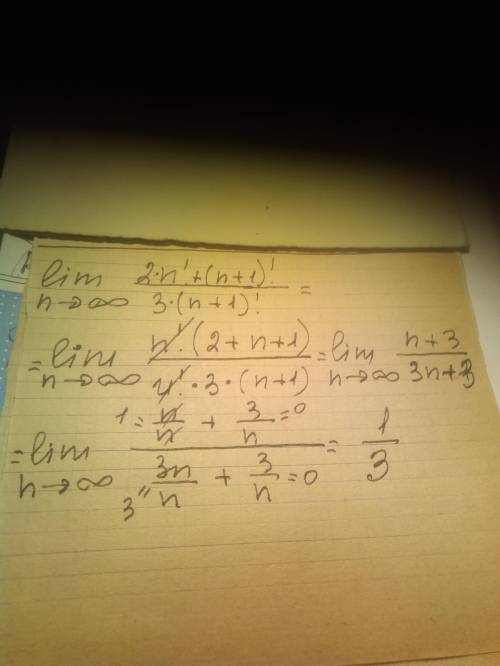 lim n→∞ (2·n!+(n+1)!)/(3·(n+1)!) =
= lim n→∞ (n!·(2+n+1))/(n!·3·(n+1)) = lim n→∞ (n+3)/(3n+3)
= lim n→∞ (1= n/n + 3/n =0)/(3" 3n/n + 3/n =0) = 1/3